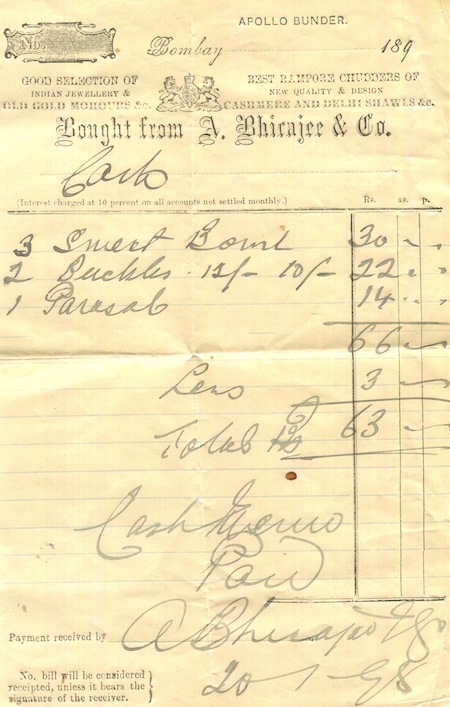 APOLLO BUNDER.
No.
Bombay 189
GOOD SELECTION OF
INDIAN JEWELLERY &
OLD GOLD MOHOURS &c.
BEST RAMPORE CHUDDERS OF
NEW QUALITY & DESIGN
CASHMERE AND DELHI SHAWLS &c.
Bought from A. Bhicajee & Co.
Cash
(Interest charged at 10 percent on all accounts not settled monthly.) Rs. as. p.
3 Sweet Bowl 30 " "
2 Buckles 12/- 10/- 22 " "
1 Parasol 14 " "
66 "
Less 3 "
Total Rs 63 "
Cash Memo
Paid
Payment received by A Bhicajee & Co
20 1 98
No. bill will be considered
receipted, unless it bears the
signature of the receiver.